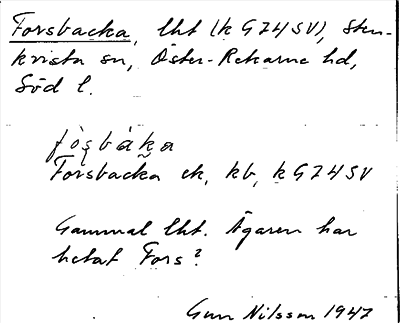 Forsbacka, lht (k G 7 4 SV), Sten-
kvista sn, Öster-Rekarne hd,
Söd l.
fo̞șbàka
Forsbacka ek, kb, k G 7 4 SV
Gammal lht. Ägaren har
hetat Fors?
Gun Nilsson 1947